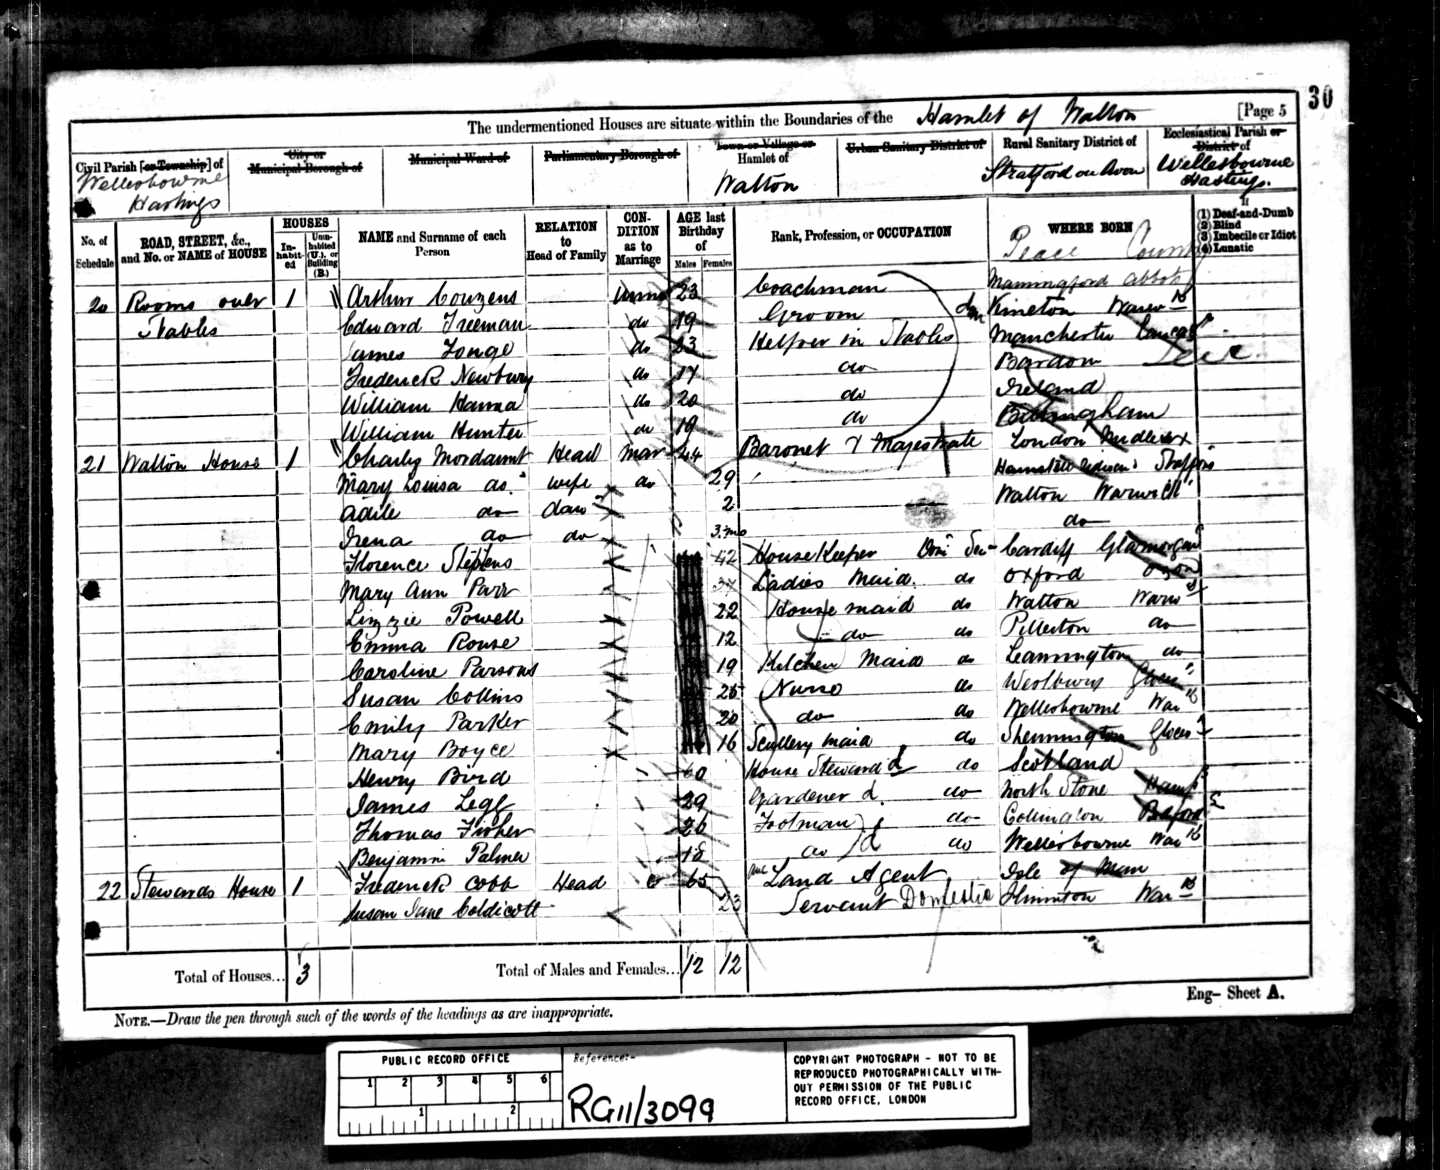 30
The undermentioned Houses are situate within the Boundaries of the Hamlet of Walton [Page 5
Civil Parish [or Township] of Wellesbourne Hastings
City or Municipal Borough of
Municipal Ward of
Parliamentary Borough of
Town or Village or Hamlet of Walton
Urban Sanitary District of
Rural Sanitary District of Stratford on Avon
Ecclesiastical Parish or District of Wellesbourne Hastings.
No. of Schedule
ROAD, STREET, &c., and No. or NAME of HOUSE
HOUSES
Inhabited
Uninhabited (U.), or Building (B.)
NAME and Surname of each Person
RELATION to Head of Family
CONDITION as to Marriage
AGE last Birthday of
Males Females
Rank, Profession, or OCCUPATION
WHERE BORN
Place County
If
(1) Deaf-and-Dumb
(2) Blind
(3) Imbecile or Idiot
(4) Lunatic
20 Rooms over 1 Arthur Couzens 23 Coachman
Stables Edward Freeman do 19 Groom Kineton
James Tonge do 23 Helper in Stables Manchester
Frederick Newbury do 17 do Bardon
William Hanna do 20 do Ireland
William Hunter do 19 do
21 Walton House 1 Charles Mordaunt Head Mar 44 Baronet & Magestrate London Middlesex
Mary Louisa do. wife do 29
Adile do daur 2 Walton Warwick
Irena do do 3.mo do
Florence Stephens 42 House Keeper Cardiff Glamorgan
Mary Ann Parr 37 Ladies Maid. do Oxford Oxon
Lizzie Powell 22 House maid do Walton
Emma Rouse 12 do do Pillerton do
Caroline Parsons 19 Kitchen Maid do Leamington do
Susan Collins 25 Nurse do
Emily Parker 20 do do Wellesbourne
Mary Boyce 16 Scullery maid do Shennington
Henry Bird 60 House Steward do Scotland
James Legg 29 Gardener d. do North Stone
Thomas Fisher 26 Footman do
Benjamin Palmer 18 do do Wellesbourne
22 Stewards House 1 Frederick Cobb Head 65 Land Agent Isle of Man
Susan Jane Coldicott 23 Servant Domestic
Total of Houses... 3 Total of Males and Females... 12 12
NOTE.—Draw the pen through such of the words of the headings as are inappropriate.
Eng– Sheet A.
PUBLIC RECORD OFFICE
1 2 3 4 5 6
1 2
Reference:-
RG11/3099
COPYRIGHT PHOTOGRAPH - NOT TO BE
REPRODUCED PHOTOGRAPHICALLY WITH-
OUT PERMISSION OF THE PUBLIC
RECORD OFFICE, LONDON